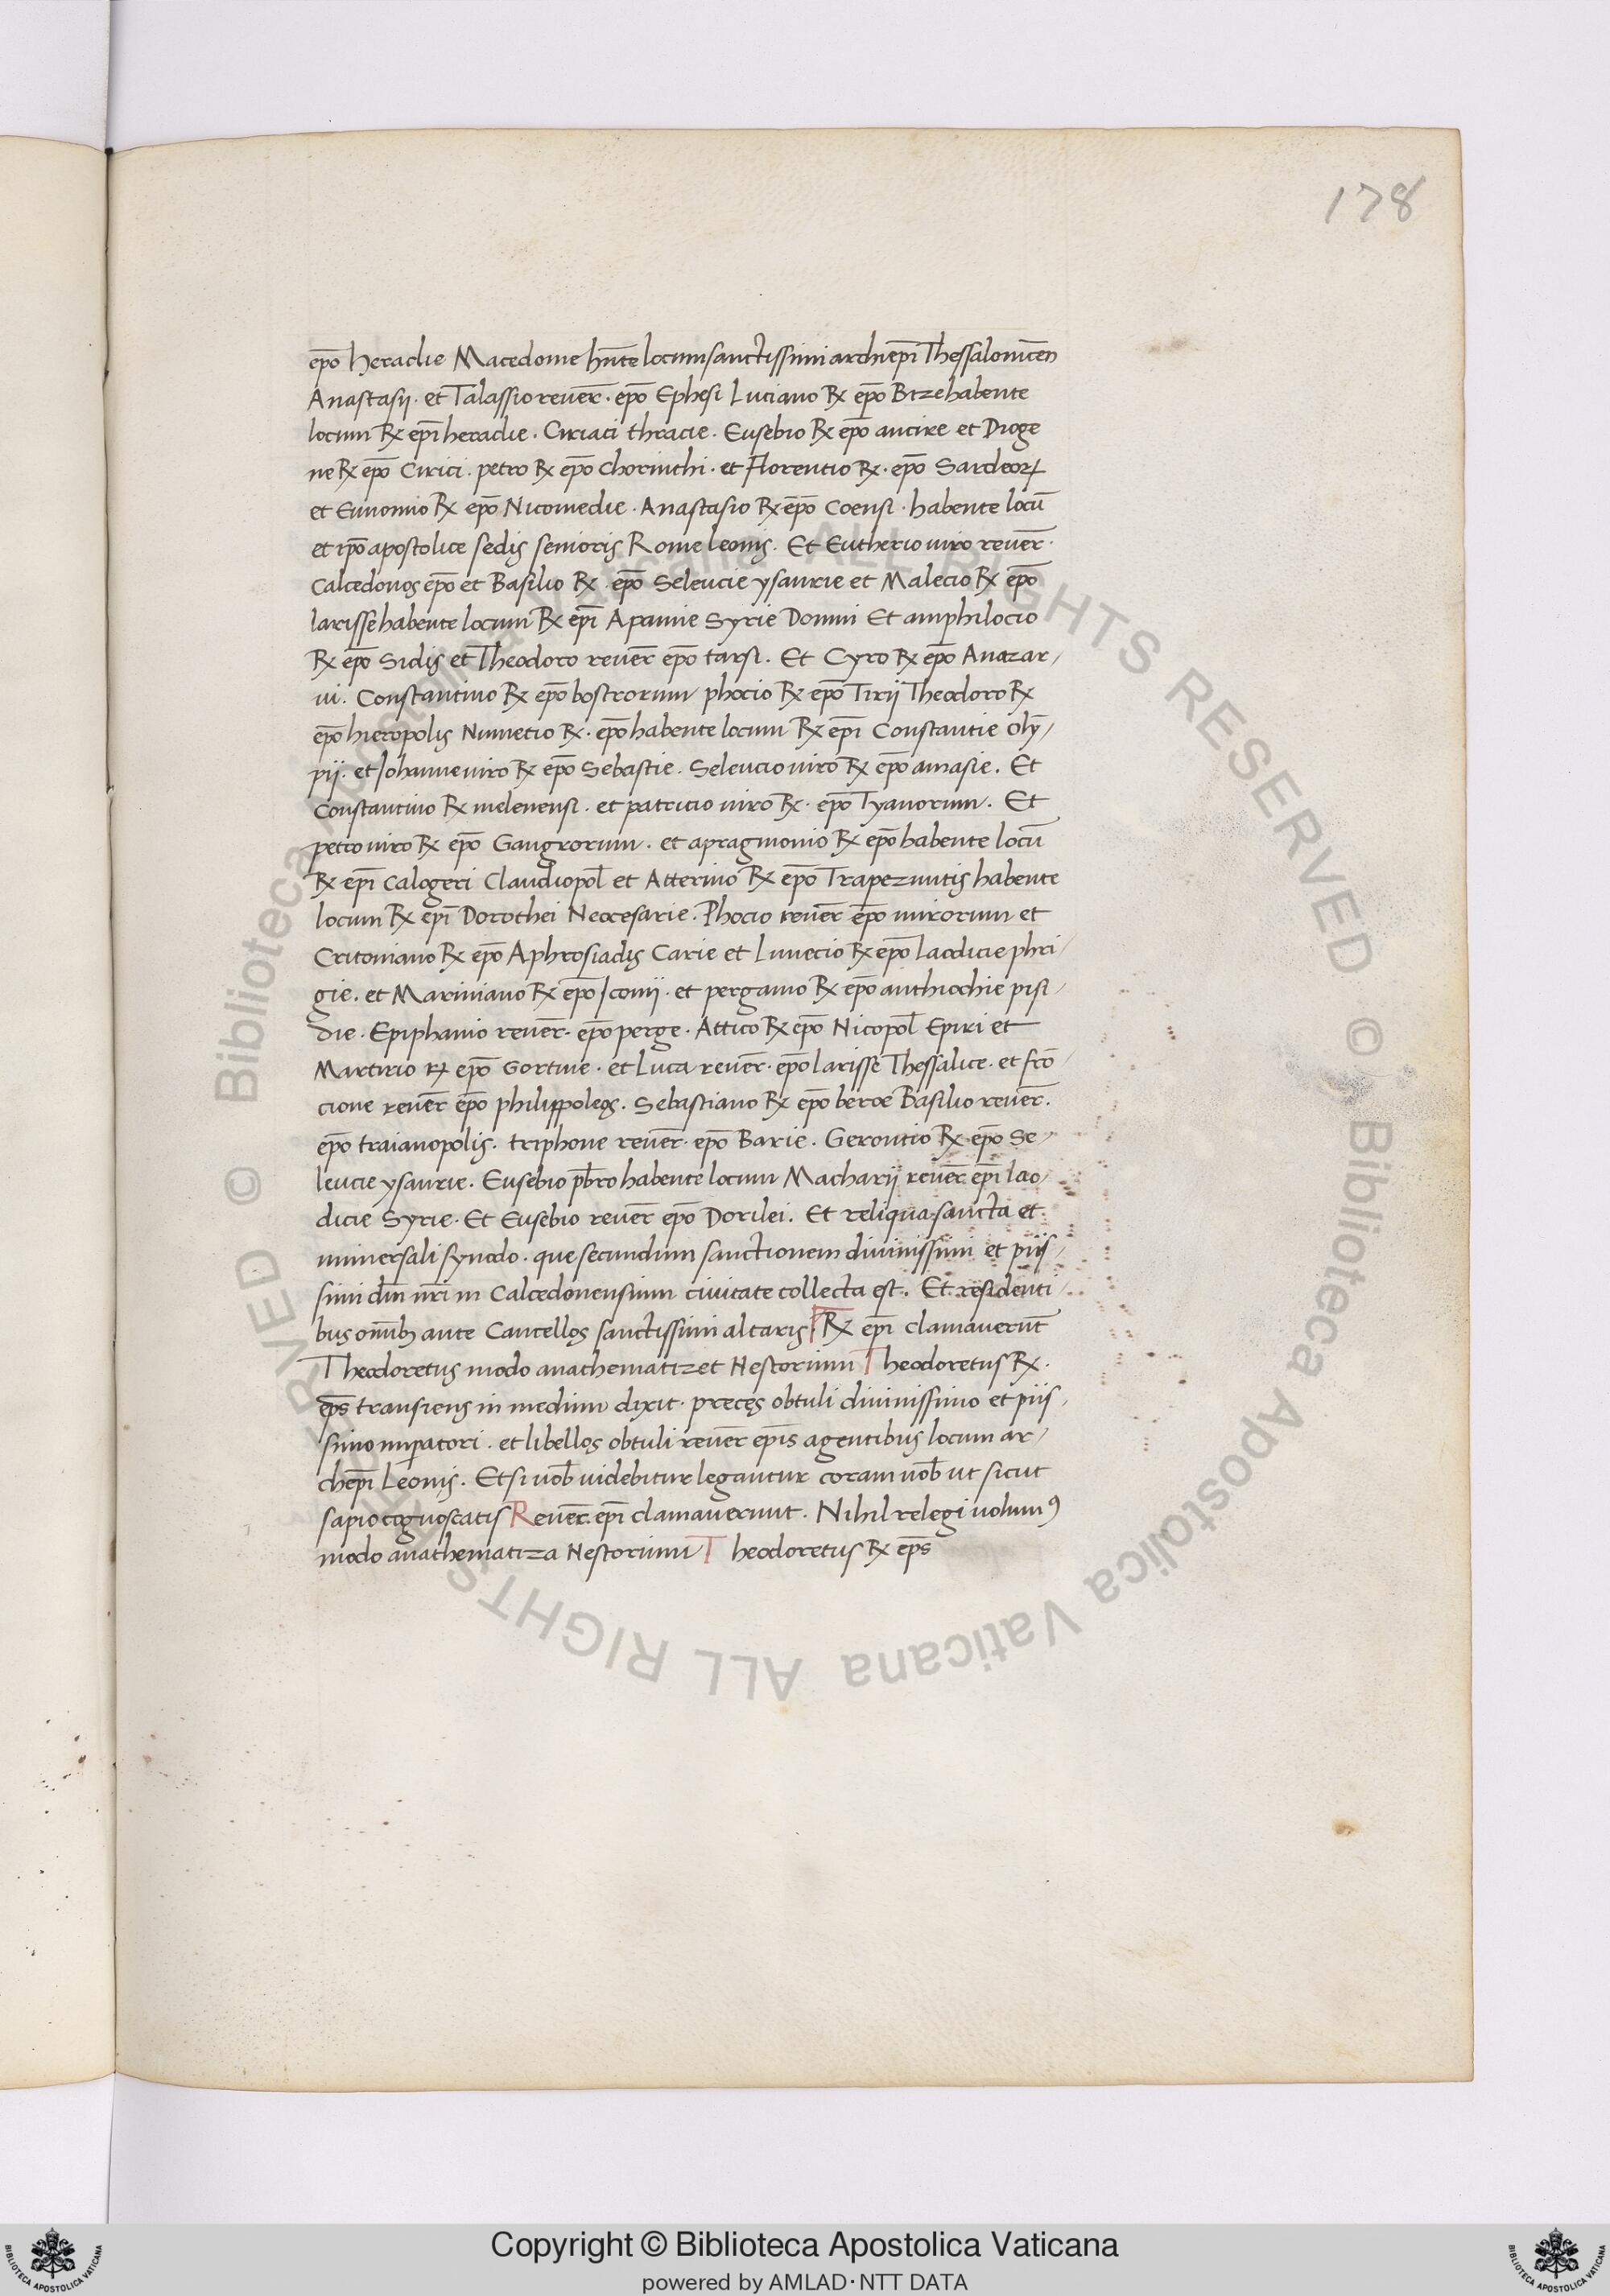 178
ep̅o heraclie Macedonie hn̅te locum sanctissimi archiep̅i Thessalonicen̅
Anastasij · et Talassio reuer̅ · ep̅o Ephesi Luciano ℞ ep̅o Bize habente
locum ℞ ep̅i heraclie · Ciriaci thracie · Eusebio ℞ ep̅o ancire et Dioge
ne ℞ ep̅o Cirici · petro ℞ ep̅o Chorinthi · et Florentio ℞ · ep̅o Sardeoꝝ
et Eunomio ℞ ep̅o Nicomedie · Anastasio ℞ ep̅o Coensi · habente locu̅
et ip̅o apostolice sedis senioris Rome leonis · Et Eutherio uiro reuer̅ ·
Calcedonos ep̅o et Basilio ℞ · ep̅o Seleucie ysaurie et Malecio ℞ ep̅o
larisse habente locum ℞ ep̅i Apamie Syrie Domni Et amphilocio
℞ ep̅o Sidis et Theodoro reuer̅ ep̅o tarsi . Et Cyro ℞ ep̅o Anazar/
ui . Constantino ℞ ep̅o bostrorum photio ℞ ep̅o Tirij Theodoro ℞
ep̅o hieropolis Nunetio ℞ · ep̅o habente locum ℞ ep̅i Constantie oly̅/
pij · et Johanne uiro ℞ ep̅o Sebastie . Seleucio uiro ℞ ep̅o amasie . Et
Constantino ℞ melenensi · et patricio uiro ℞ · ep̅o Tyanorum . Et
petro uiro ℞ ep̅o Gangrorum . et apragmonio ℞ ep̅o habente locu̅
℞ ep̅i Calogeri Claudiopol̅ et Atterino ℞ ep̅o Trapezuntis habente
locum ℞ ep̅i Dorothei Neocesarie . Phocio reuer̅ ep̅o mirorum et
Critoniano ℞ ep̅o Aphrosiadis Carie et Lunecio ℞ ep̅o laodicie phri/
gie . et Mariniano ℞ ep̅o Jconij · et pergamo ℞ ep̅o anthiochie pisi/
die · Epiphanio reuer̅ · ep̅o perge · Attico ℞ ep̅o Nicopol̅ Epiri et
Martirio ℞ ep̅o Gortine · et Luca reuer̅ · ep̅o larisse Thessalice · et fro̅/
cione reuer̅ ep̅o philippoleos . Sebastiano ℞ ep̅o beroe Basilio reuer̅ .
ep̅o traianopolis . triphone reuer̅ · ep̅o Barie . Gerontio ℞ ep̅o Se/
leucie ysaurie . Eusebio pb̅ro habente locum Macharij reuer̅ ep̅i lao/
dicie Syrie · Et Eusebio reuer̅ ep̅o Dorilei . Et reliqua sancta et
uniuersali synodo · que secundum sanctionem diuinissimi et piis/
simi dn̅i nr̅i in Calcedonensium ciuitate collecta est . Et residenti/
bus omnib; ante Cancellos sanctissimi altaris ℞ ep̅i clamaueru̅t
Theodoretus modo anathematizet Nestorium Theodoretus ℞ ·
ep̅s transiens in medium dixit · preces obtuli diuinissimo et piis/
simo imꝑatori . et libellos obtuli reuer̅ ep̅is agentibus locum ar/
chiep̅i Leonis . Et si uob̅ uidebitur legantur coram uob̅ ut sicut
sapio cognoscatis Reuer̅ ep̅i clamauerunt . Nihil relegi uolumꝰ
modo anathematiza Nestorium Theodoretus ℞ ep̅s
© Biblioteca Apostolica Vaticana ALL RIGHTS RESERVED © Biblioteca Apostolica Vaticana ALL RIGHTS RESERVED
Copyright © Biblioteca Apostolica Vaticana
powered by AMLAD·NTT DATA
BIBLIOTECA APOSTOLICA VATICANA
BIBLIOTECA APOSTOLICA VATICANA